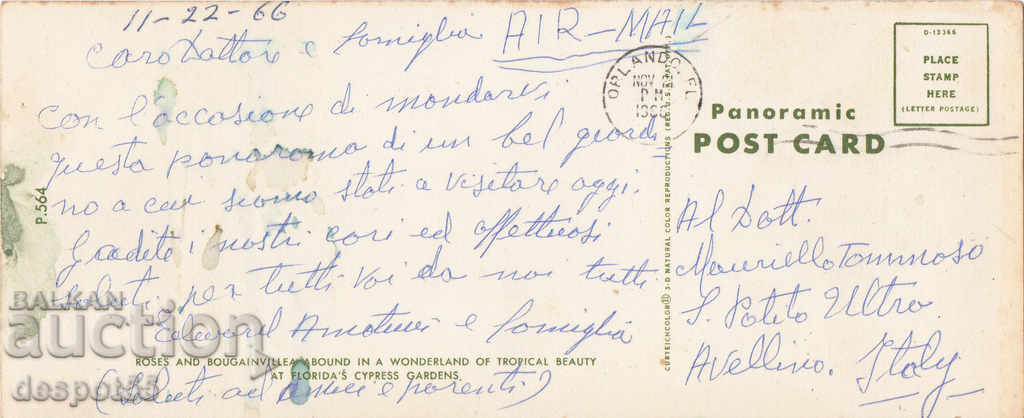 11-22-66
AIR-MAIL
Caro Dattore e Fomiglia
con l'accasione di mondarvi
questa ponaroma di un bel giordi
no a cui siomo stati a visitare oggi.
Gradite i nostri cori ed affettuosi
saluti per tutti voi da noi tutti
Edward e Fomiglia
(Saluti ad amici e porenti)
ROSES AND BOUGAINVILLEA ABOUND IN A WONDERLAND OF TROPICAL BEAUTY
AT FLORIDA'S CYPRESS GARDENS
P.564
CURTEICHCOLOR® 3-D NATURAL COLOR REPRODUCTIONS (REG. U.S.A. PAT. OFF.)
ORLANDO, FL
NOV
PM
Panoramic
POST CARD
D-12366
PLACE
STAMP
HERE
(LETTER POSTAGE)
Al Dott.
Mauriello Tommoso
S. Potito Ultro
Avellino. Italy
BALKAN
auction
despot15